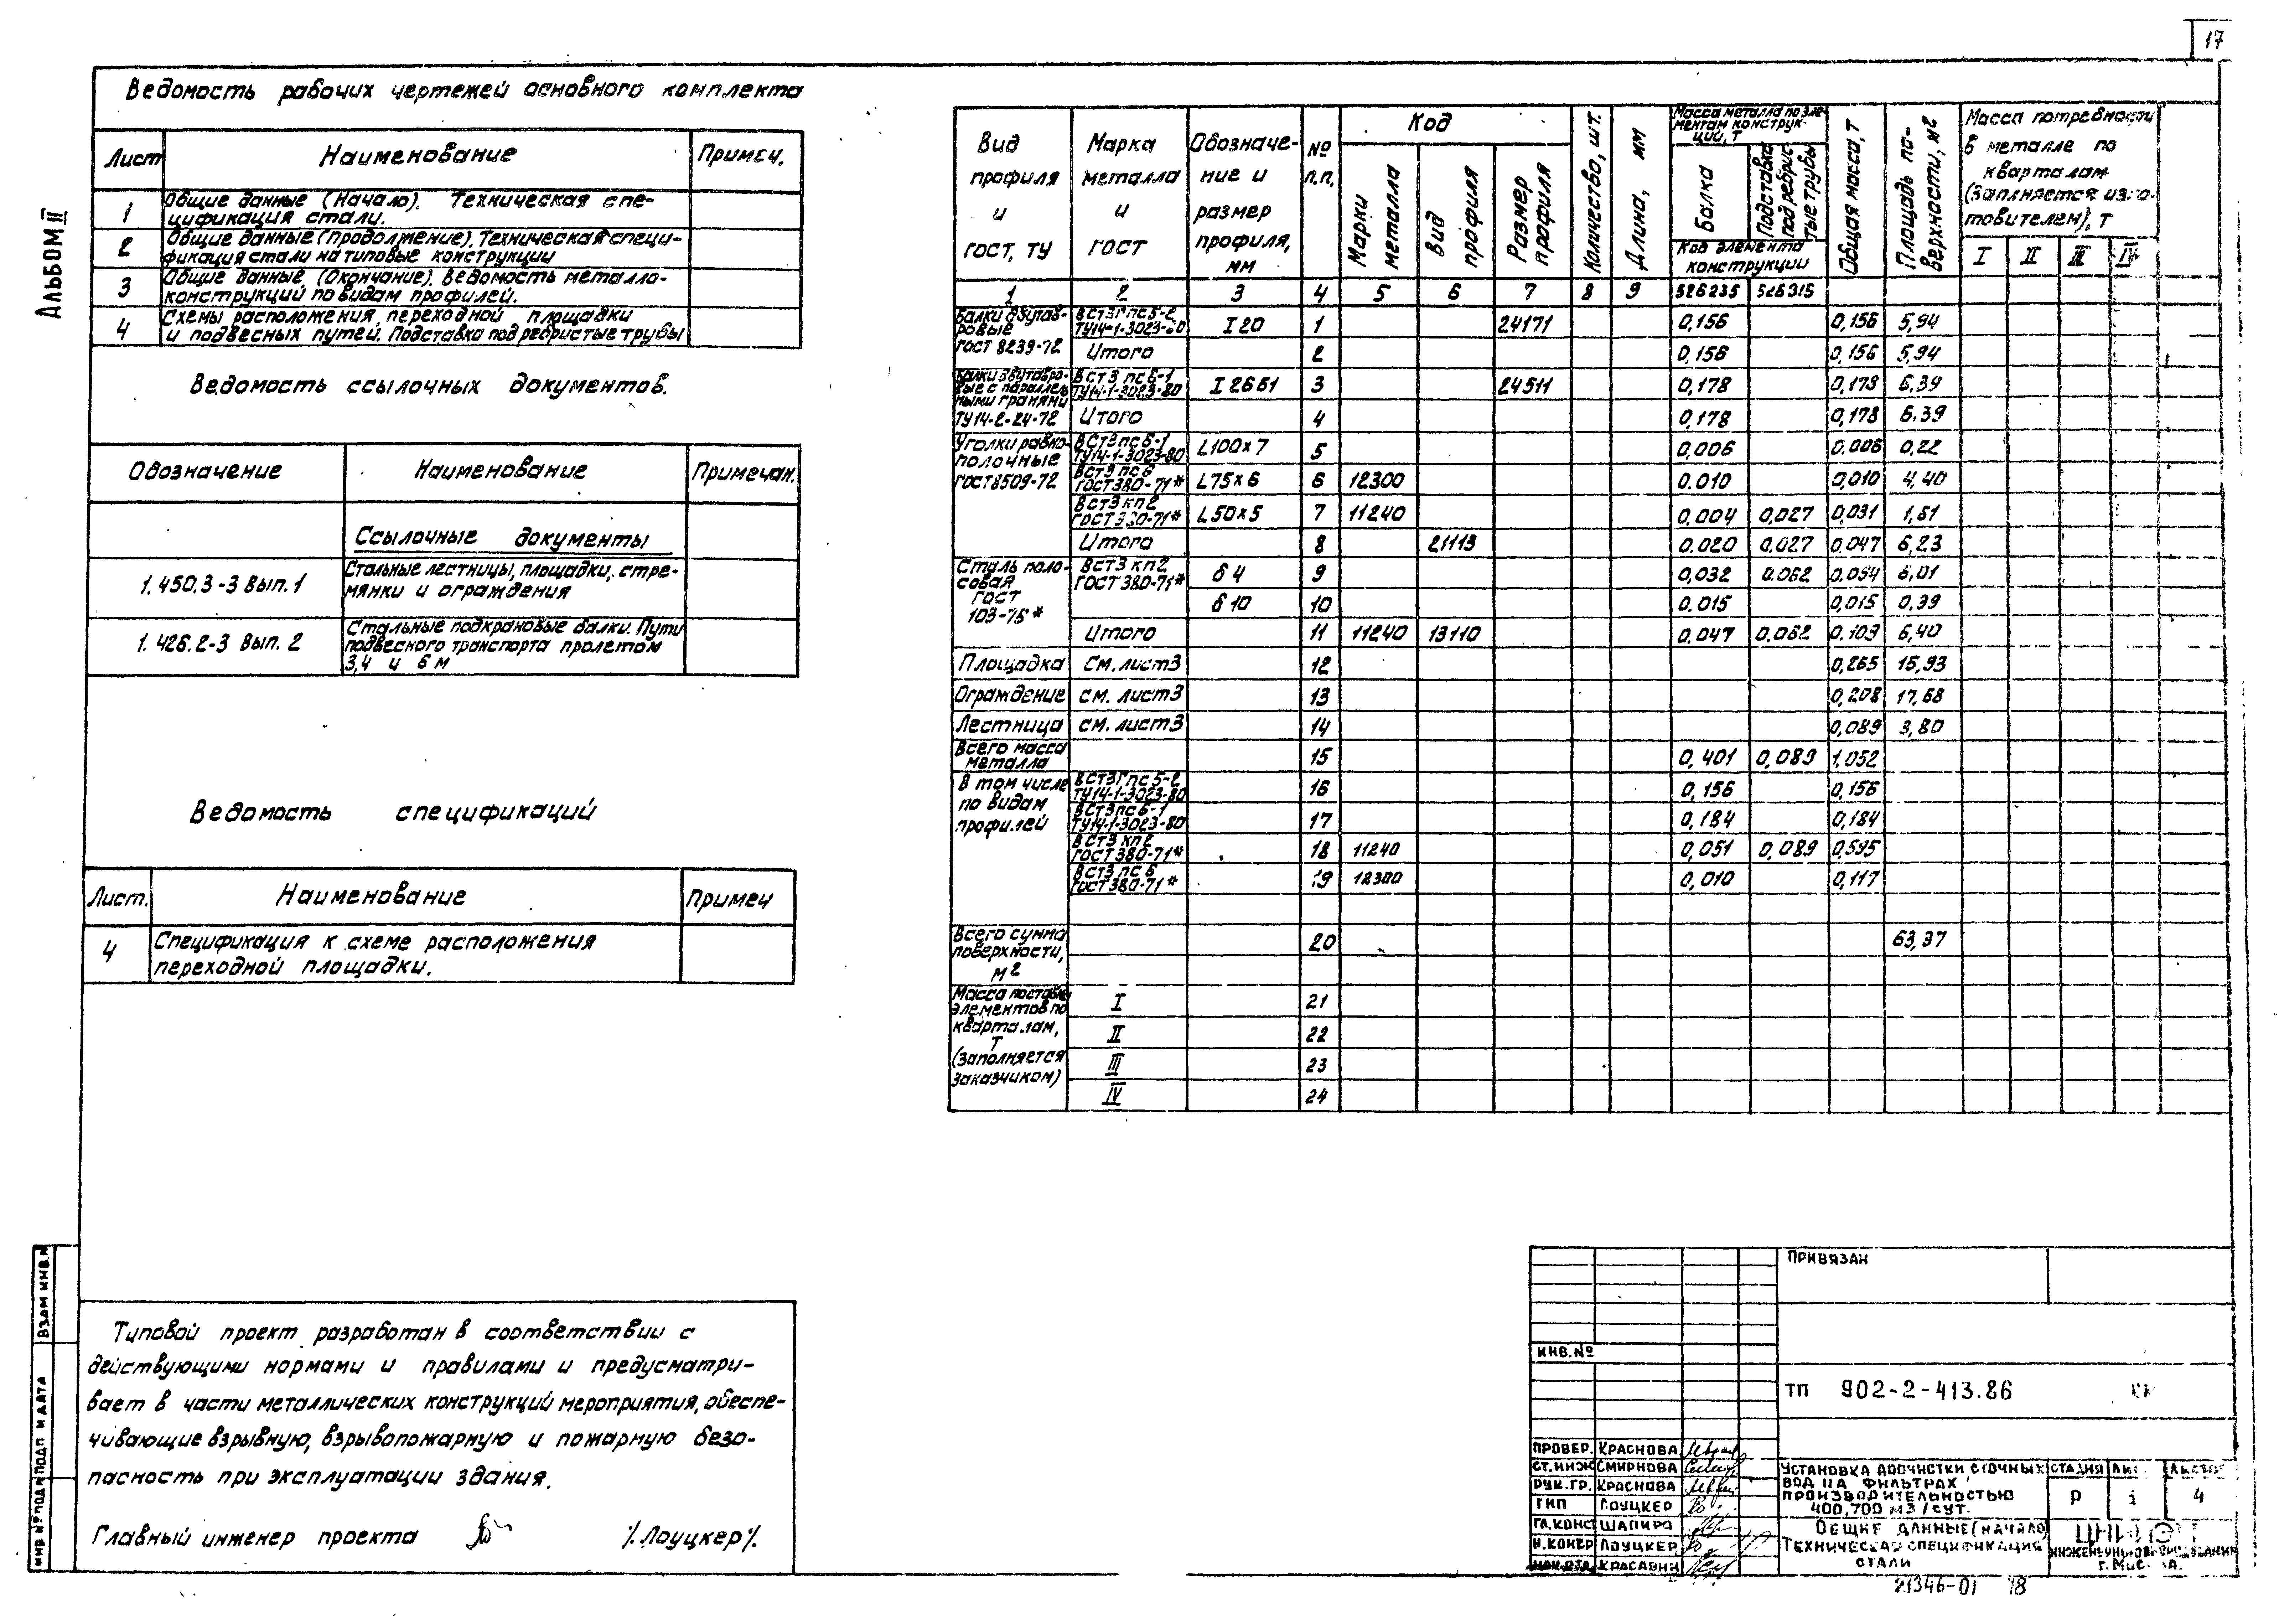 17
Альбом II
Ведомость рабочих чертежей основного комплекта
Лист Наименование Примеч.
1 Общие данные (Начало). Техническая спе-
цификация стали.
2 Общие данные (продолжение). Техническая специ-
фикация стали на типовые конструкции
3 Общие данные. (Окончание). Ведомость металло-
конструкций по видам профилей.
4 Схемы расположения переходной площадки
и подвесных путей. Подставка под ребристые трубы
Ведомость ссылочных документов.
Обозначение Наименование Примечан.
Ссылочные документы
1.450.3-3 Вып.1 Стальные лестницы, площадки, стре-
мянки и ограждения
1.426.2-3 Вып. 2 Стальные подкрановые балки. Пути
подвесного транспорта пролетом
3,4 и 6 м
Ведомость спецификаций
Лист. Наименование Примеч
4 Спецификация к схеме расположения
переходной площадки.
Типовой проект разработан в соответствии с
действующими нормами и правилами и предусматри-
вает в части металлических конструкций мероприятия, обеспе-
чивающие взрывную, взрывопожарную и пожарную безо-
пасность при эксплуатации здания.
Главный инженер проекта /Лоуцкер/.
Вид профиля и ГОСТ, ТУ
Марка металла и ГОСТ
Обозначе-ние и размер профиля, мм
№ п.п.
Код
Марки металла
Вид профиля
Размер профиля
Количество, шт.
Длина, мм
Масса металла по эле-
ментам конструк-
ций, т
Балка
Подставка под ребрис-
тые трубы
Код элемента
конструкции
Общая масса, т
Площадь по-
верхности, м2
Масса потребности
в металле по
кварталам
(заплняется изго-
товителем), т
I II III IV
1 2 3 4 5 6 7 8 9 526235 526315
Балки двутав-
ровые
ГОСТ 8239-72
ВСт3Гпс5-2
ТУ14-1-3023-80 I 20 1 24171 0,156 0,156 5,94
Итого 2 0,156 0,156 5,94
Балки двутавро-
вые с параллель
ными гранями
ТУ14-2-24-72
ВСт3 пс6-1
ТУ14-1-3023-80 I 26Б1 3 24511 0,178 0,178 6.39
Итого 4 0,178 0,178 6.39
Уголки равно-
полочные
ГОСТ8509-72
ВСт3пс6-1
ТУ14-1-3023-80 L100х7 5 0,006 0.006 0,22
ВСт3 пс6
ГОСТ380-71* L75х6 6 12300 0.010 0,010 4,40
ВСт3кп2
ГОСТ380-71* L50х5 7 11240 0.004 0,027 0,031 1,61
Итого 8 21113 0.020 0.027 0,047 6,23
Сталь поло-
совая
ГОСТ
103-76*
ВСт3 кп2
ГОСТ 380-71* δ4 9 0,032 0.062 0,094 6,01
δ10 10 0.015 0,015 0,39
Итого 11 11240 13110 0.047 0,062 0.109 6,40
Площадка См. лист3 12 0,265 16,93
Ограждение см. лист3 13 0,208 17,68
Лестница см. лист3 14 0,089 3,80
Всего масса
металла 15 0,401 0,089 1,052
В том числе
по видам
профилей
ВСт3Гпс5-2
ТУ14-1-3023-80 16 0,156 0,156
ВСт3пс6-1
ТУ14-1-3023-80 17 0,184 0,184
ВСт3 кп2
ГОСТ380-71* 18 11240 0,051 0,089 0,595
ВСт3 пс6
ГОСТ380-71* 19 12300 0,010 0,117
Всего сумма
поверхности,
м2 20 63,37
Масса поставки
элементов по
кварталам,
т
(заполняется
заказчиком)
I 21
II 22
III 23
IV 24
Привязан
Инв.№
ТП 902-2-413.86
Провер. Краснова
Ст.инж Смирнова
Рук.гр. Краснова
ГИП Лоуцкер
Гл.конст Шапиро
Н.контр Лоуцкер
Нач.отд. Красавин
Установка доочистки сточных
вод на фильтрах
производительностью
400,700 м3/сут.
Стадия
Р 4
Общие данные (начало)
Техническая спецификация
стали
21346-01 18
Взам инв.
Подп и дата
Инв №подл